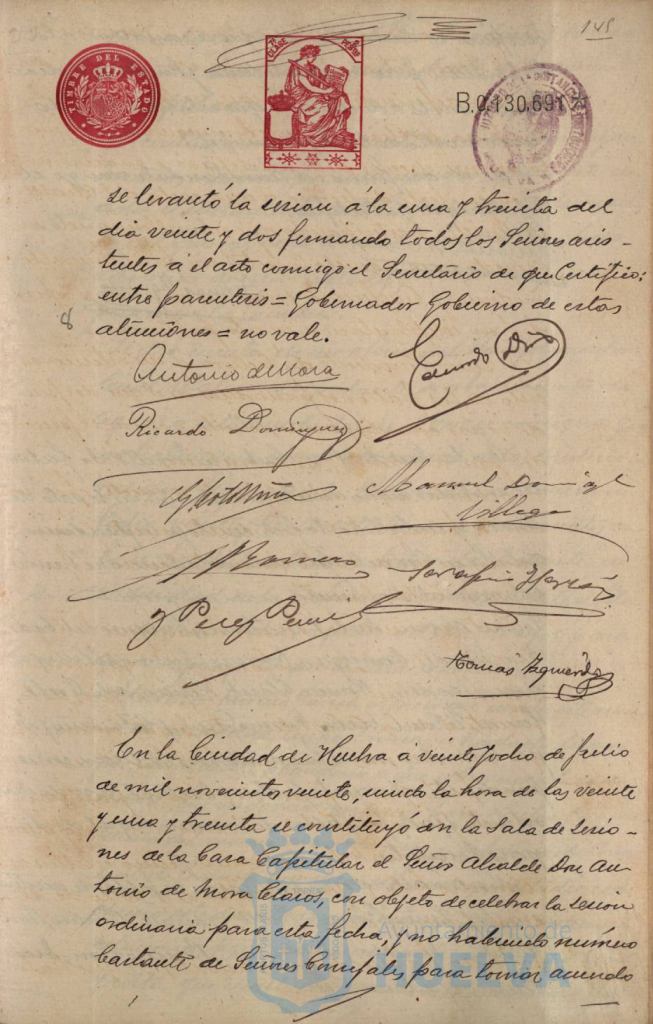 145
TIMBRE DEL ESTADO
B.0.130.691
se levantó la sesion á la una y treinta del
dia veinte y dos firmando todos los Señores asis-
tentes á el acto conmigo el Secretario de que Certifico:
entre parentesis = Gobernador Gobierno de estas
atenciones = no vale.
Antonio de Mora
Eduardo Diaz
Ricardo Dominguez
Manuel Doming
Villega
Romero
Serafin
J Perez
Tomás Izquierdo
En la Ciudad de Huelva á veinte y ocho de Julio
de mil novecientos veinte, siendo la hora de las veinte
y una y treinta se constituyó en la Sala de Sesio-
nes de la Casa Capitular el Señor Alcalde Don An-
tonio de Mora Claros, con objeto de celebrar la sesion
ordinaria para esta fecha, y no habiendo número
bastante de Señores Concejales para tomar acuerdo
Ayuntamiento de
HUELVA